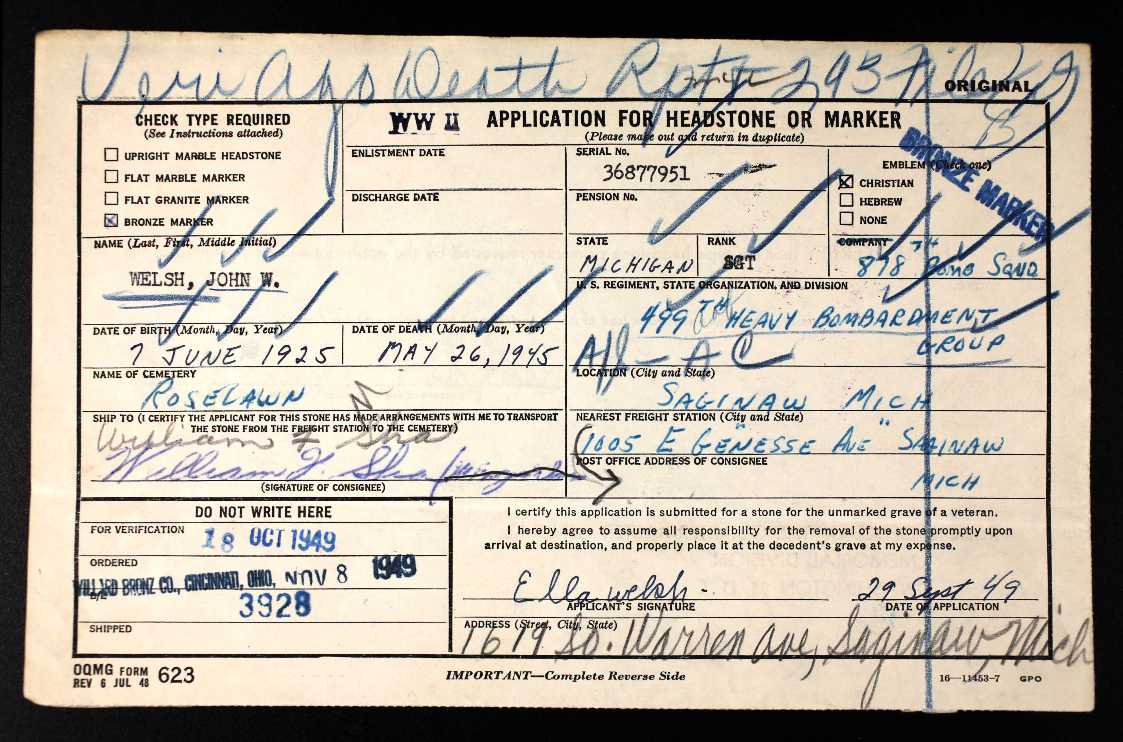 Veri Ago Death Rpt 293 File
ORIGINAL
CHECK TYPE REQUIRED
(See Instructions attached)
UPRIGHT MARBLE HEADSTONE
FLAT MARBLE MARKER
FLAT GRANITE MARKER
BRONZE MARKER
WW II APPLICATION FOR HEADSTONE OR MARKER
(Please make out and return in duplicate)
ENLISTMENT DATE
DISCHARGE DATE
SERIAL No.
36877951
PENSION No.
EMBLEM (Check one)
CHRISTIAN
HEBREW
NONE
BRONZE MARKER
NAME (Last, First, Middle Initial)
WELSH, JOHN W.
STATE
MICHIGAN
RANK
SGT
COMPANY
878 TH BOMB SQND
U. S. REGIMENT, STATE ORGANIZATION, AND DIVISION
499 TH HEAVY BOMBARDMENT
GROUP
A C
DATE OF BIRTH (Month, Day, Year)
7 JUNE 1925
DATE OF DEATH (Month, Day, Year)
MAY 26, 1945
NAME OF CEMETERY
ROSELAWN
LOCATION (City and State)
SAGINAW MICH
SHIP TO (I CERTIFY THE APPLICANT FOR THIS STONE HAS MADE ARRANGEMENTS WITH ME TO TRANSPORT
THE STONE FROM THE FREIGHT STATION TO THE CEMETERY)
William F
William F.
(SIGNATURE OF CONSIGNEE)
NEAREST FREIGHT STATION (City and State)
1005 E GENESSE AVE" SAGINAW
POST OFFICE ADDRESS OF CONSIGNEE
MICH
DO NOT WRITE HERE
FOR VERIFICATION
18 OCT 1949
ORDERED
WILLARD BRONZ CO., CINCINNATI, OHIO, NOV 8 1949
3928
SHIPPED
I certify this application is submitted for a stone for the unmarked grave of a veteran.
I hereby agree to assume all responsibility for the removal of the stone promptly upon
arrival at destination, and properly place it at the decedent's grave at my expense.
Ella Welsh
29 Sept 49
APPLICANT'S SIGNATURE
DATE OF APPLICATION
ADDRESS (Street, City, State)
1679 So. Warren ave, Saginaw, Mich
OQMG FORM 623
REV 6 JUL 48
IMPORTANT—Complete Reverse Side
16—11453-7 GPO